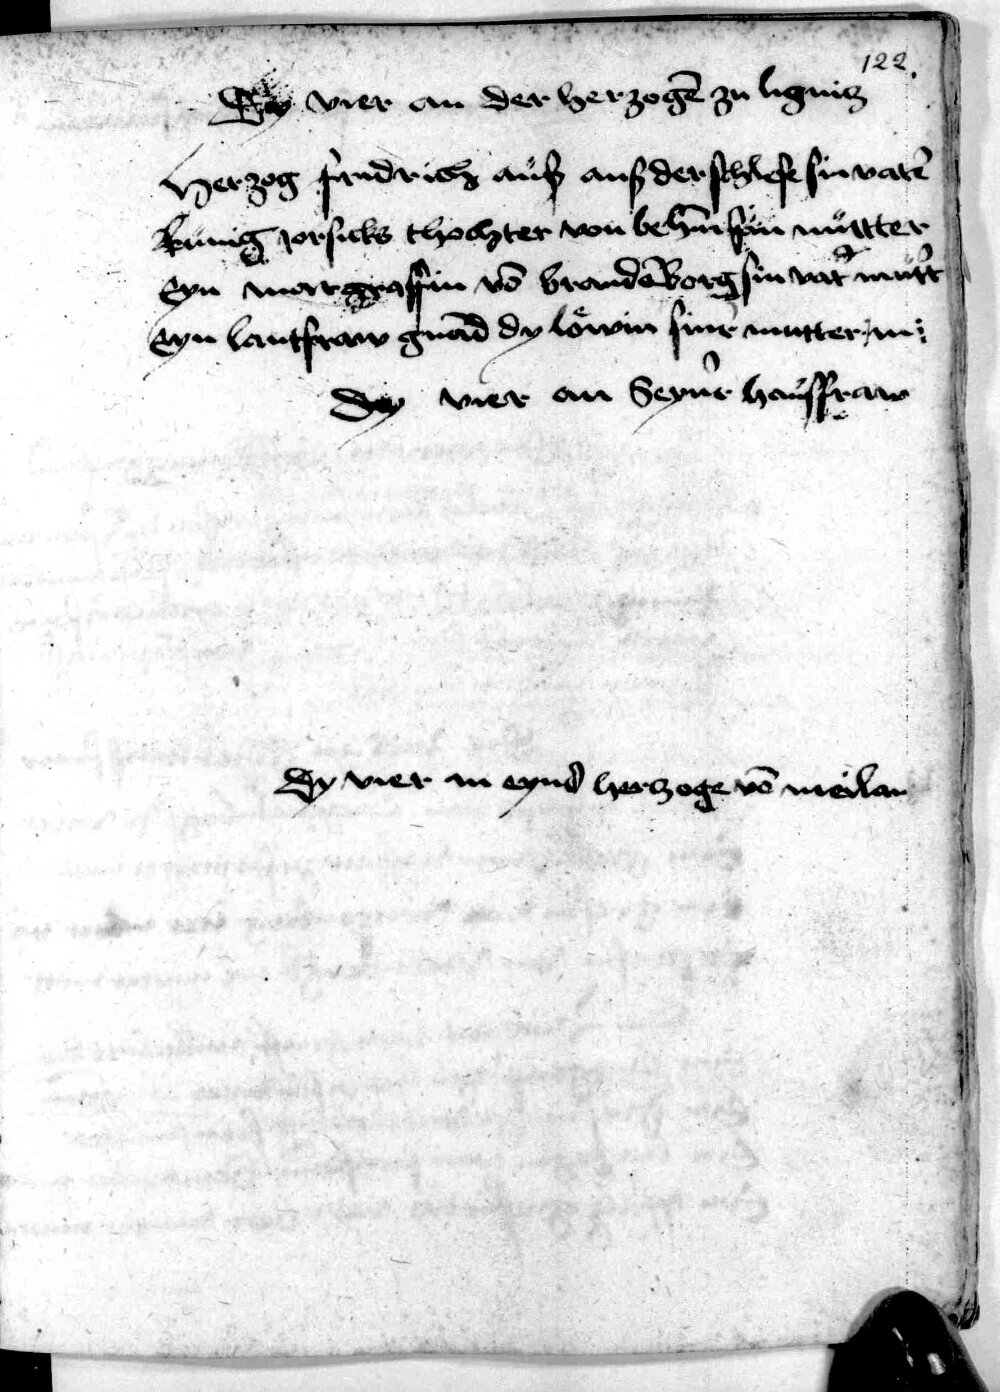 122.
Dy vier an der herzogē zu lignitz
Herzog fridrich auß der schlese sin vatē
kunig jorsicks thochter von behm sin mutter
Eyn margraffin vō brandēborg sin vatr mutt
Eyn lantfraw gnād dy löwin sinr mutter m:
Dy vier an Seynr hausfraw
Dy vier an eynd herzoge vō meilan